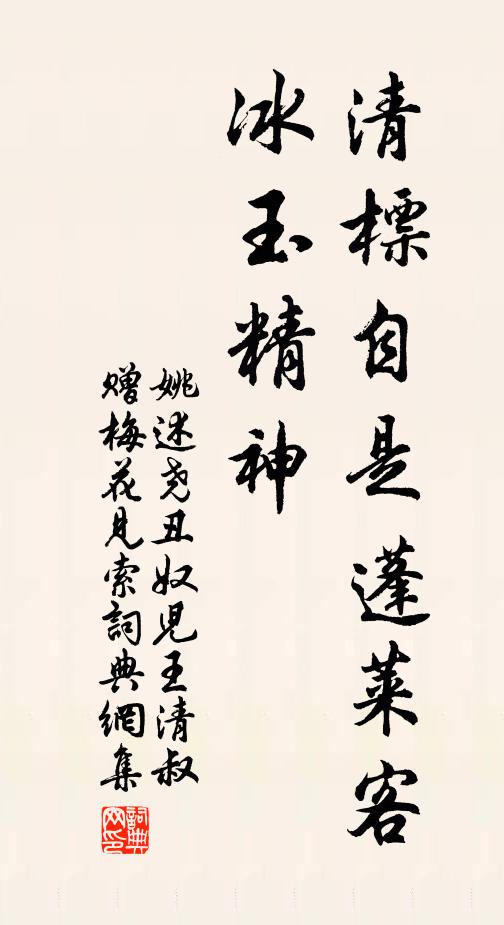 清標自是蓬萊客
冰玉精神
姚述堯丑奴児王清叔
贈梅花見索詞典網集
詞典网印